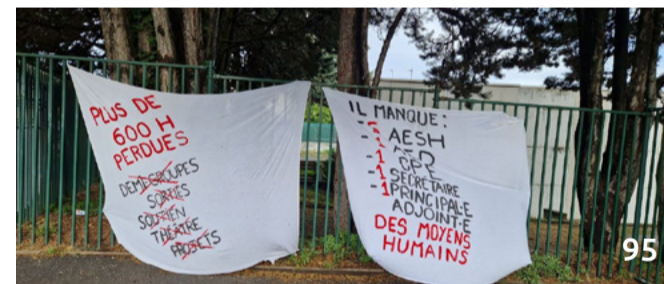 PLUS DE
600 H
PERDUES
DEMI GROUPES
SORTIES
SOUTIEN
THÉATRE
PROJETS
IL MANQUE :
- 5 AESH
- 1 AED
- 1 CPE
- 1 SECRETAIRE
- 1 PRINCIPAL·E
ADJOINT·E
DES MOYENS
HUMAINS
95